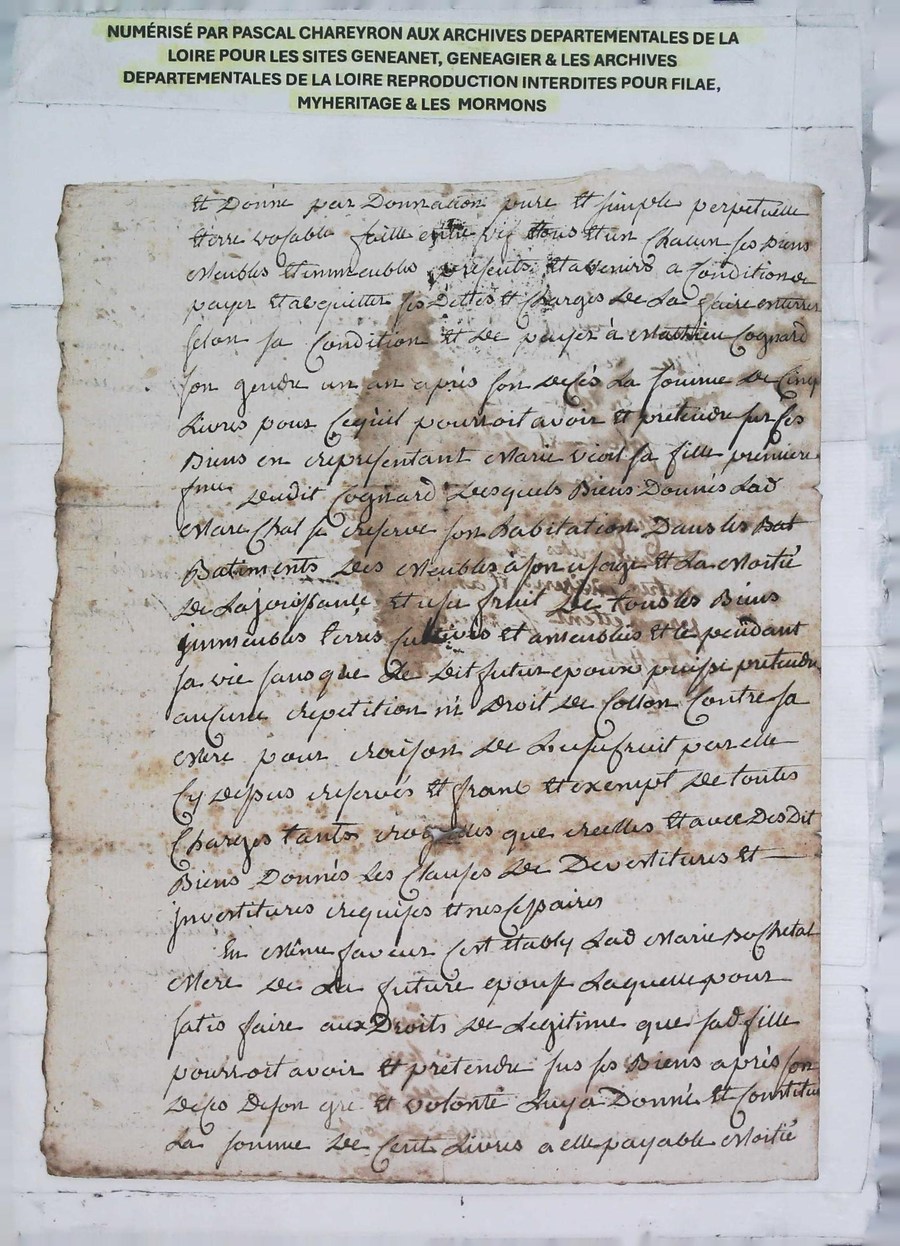 NUMÉRISÉ PAR PASCAL CHAREYRON AUX ARCHIVES DEPARTEMENTALES DE LA
LOIRE POUR LES SITES GENEANET, GENEAGIER & LES ARCHIVES
DEPARTEMENTALES DE LA LOIRE REPRODUCTION INTERDITES POUR FILAE,
MYHERITAGE & LES MORMONS
Et Donne par Donnation pure Et simple perpetuelle
Et irrevocable faitte entre vif tous Et un Chacun ses Biens
Meubles Et immeubles presents Et avenirs a Condition de
payer Et acquitter ses Dettes Et Charges De La faire enterrer
selon sa Condition Et De payer à Mathieu Cognard
son gendre un an après son decès La somme De Cinq
Livres pour Ce qu'il pourroit avoir Et pretendre sur ses
Biens en representant Marie sa fille premiere
fme Dudit Cognard Desquels Biens Donnés Lad
se reserve son habitation Dans les Bat
Batiments Des Meubles à son usage Et La Moitié
De La jouissance Et usufruit De tous les Biens
immeubles terres Et ameublés Et ce pendant
sa vie sans que Le Dit futur epoux puisse pretendre
aucune repetition ni Droit De Collon Contre sa
Mere pour raison De L'usufruit par elle
Cy Dessus reservés Et franc Et exempt De toutes
Charges tants que reelles Et avec Desdit
Biens Donnés Les Clauses De Devestitures Et
investitures requises Et nessessaires
En Même faveur C'est étably Lad Marie Bochetal
Mere De La future epouse Laquelle pour
satisfaire aux Droits De Legitime que sad fille
pourroit avoir Et pretendre sus ses Biens après son
Deces De son gré Et volonté Luy a Donné Et Constitué
La somme De Cent Livres a elle payable Moitié